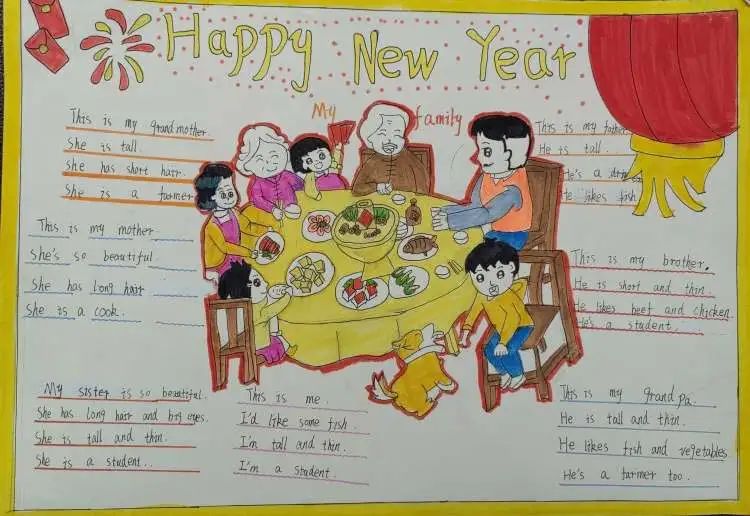 Happy New Year
My family
This is my grandmother
She is tall.
She has short hair.
She is a farmer
This is my mother
She's so beautiful.
She has long hair
She is a cook.
This is my father
He is tall.
He's a
He likes fish
This is my brother.
He is short and thin.
He likes beef and chicken
He's a student
My sister is so beautiful.
She has long hair and big eyes.
She is tall and thin.
She is a student..
This is me.
I'd like some fish.
I'm tall and thin.
I'm a student.
This is my grandpa.
He is tall and thin.
He likes fish and vegetables
He's a farmer too.